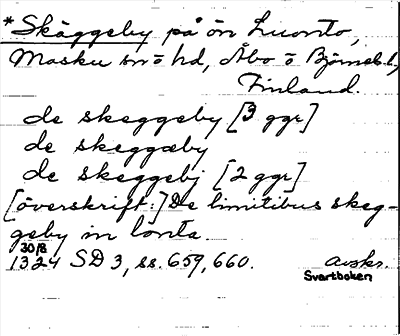 *Skäggeby på ön Luonto,
Masku snö hd, Åbo o Björneb. l,
Finland.
de skeggeby [3 ggr]
de skeggæby
de skeggebj [2 ggr]
[överskrift:] De limitibus skeg-
geby in lonta
30/8
1324 SD 3, ss. 659, 660. avskr.
Svartboken